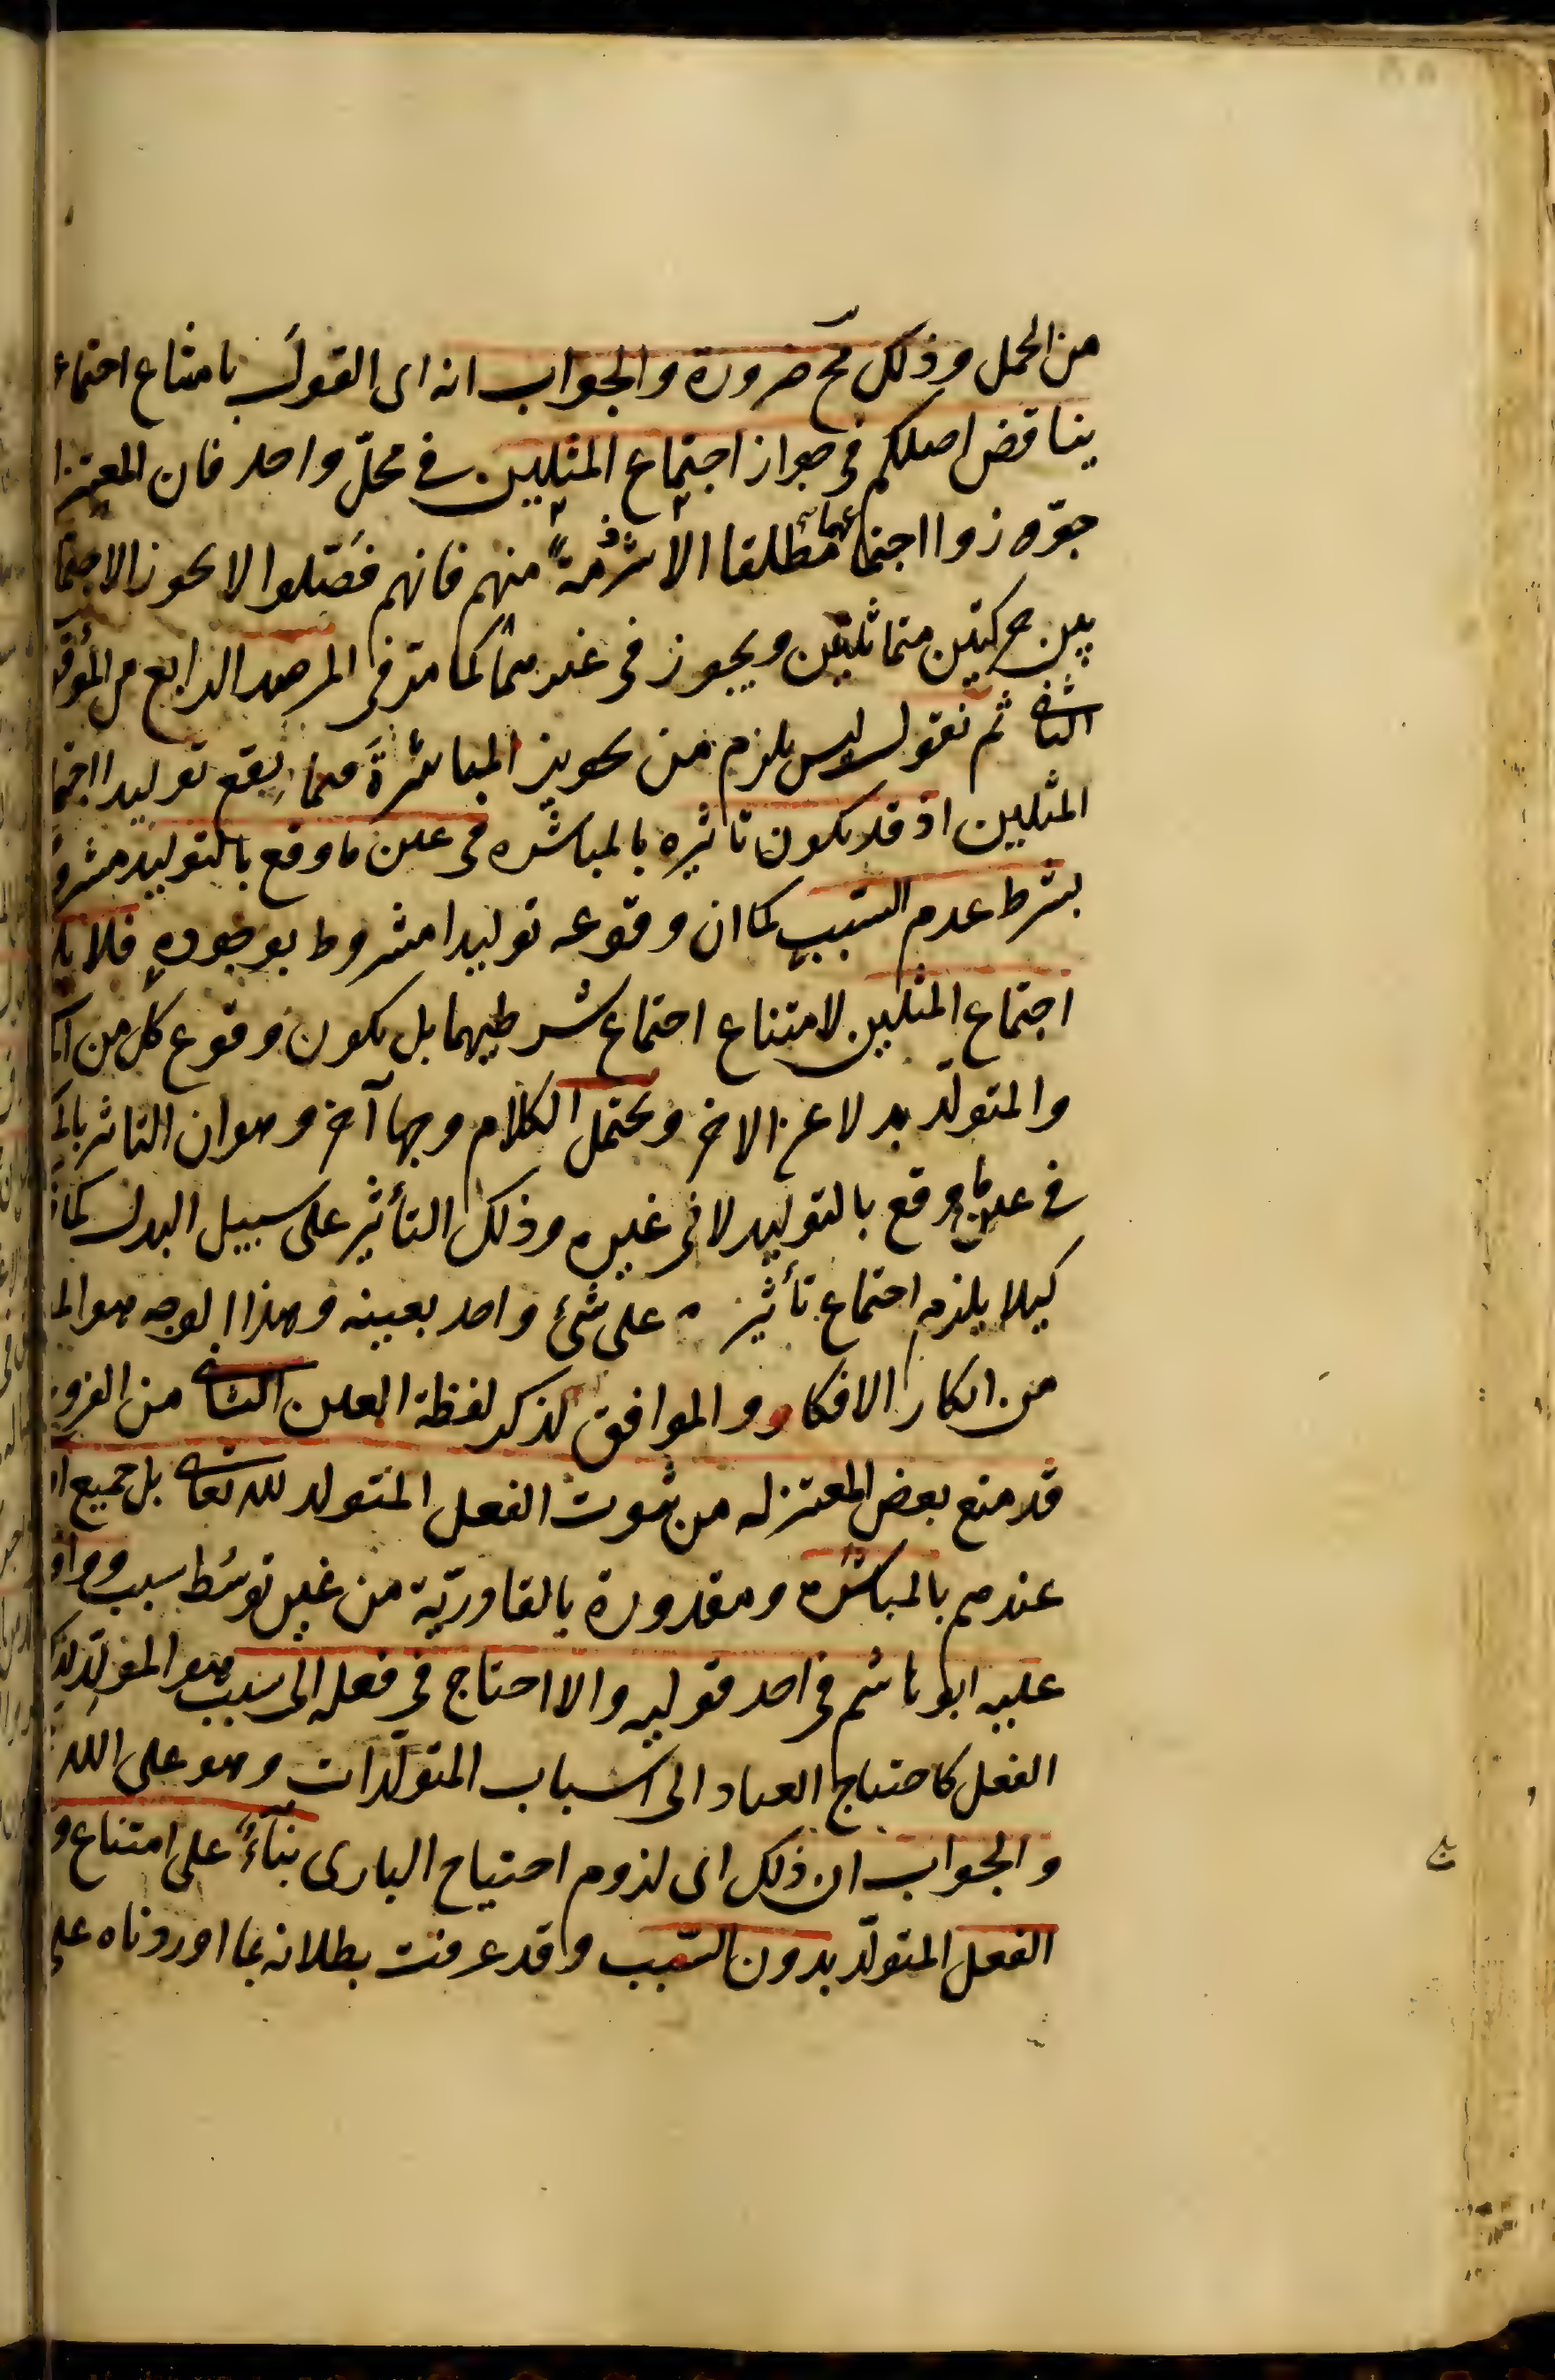 من الحمل وذلك مح ضرورة والجواب انه اى القول بامتناع اجتماع
يناقض اصلكم فى جواز اجتماع المثلين فى محلّ واحد فان المعتزا
جوّزوا اجتماعهما مطلقا الا شرذمة منهم فانهم فصّلوا لا يجوز الاجتما
بين حركتين متماثلتين ويجوز فى غيرهما كما مرّ فى المرصد الرابع من الموقف
الثانى ثم نقول ليس يلزم من تجويز المباشرة فيما يقع توليدا اجتما
المثلين اذ قد يكون تاثيره بالمباشرة فى عين ما وقع بالتوليد مشرو
بشرط عدم السّبب كما ان وقوعه توليدا مشروط بوجوده فلا يلز
اجتماع المثلين لامتناع اجتماع شرطيهما بل يكون وقوع كل من
والمتولّد بدلا عن الاخر ويحتمل الكلام وجها آخر وهو ان التاثير بالمبا
فى عين ما وقع بالتوليد لا فى غيره وذلك التأثير على سبيل البدل كما
كيلا يلزم اجتماع تأثير على شئ واحد بعينه وهذا الوجه هو الم
من ابكار الافكار والموافق لذكر لفظة العين الثانى من الفروع
قد منع بعض المعتزله من ثبوت الفعل المتولد لله تعالى بل جميع ا
عندهم بالمباشرة ومقدورة بالقادريّة من غير توسّط سبب ووافق
عليه ابو هاشم فى احد قوليه والا احتاج فى فعله الى سبب هو المولّد لذلك
الفعل كاحتياج العباد الى اسباب المتولّدات وهو على الله
والجواب ان ذلك اى لزوم احتياج البارى بناءً على امتناع و
الفعل المتولّد بدون السّبب وقد عرفت بطلانه بما اوردناه على